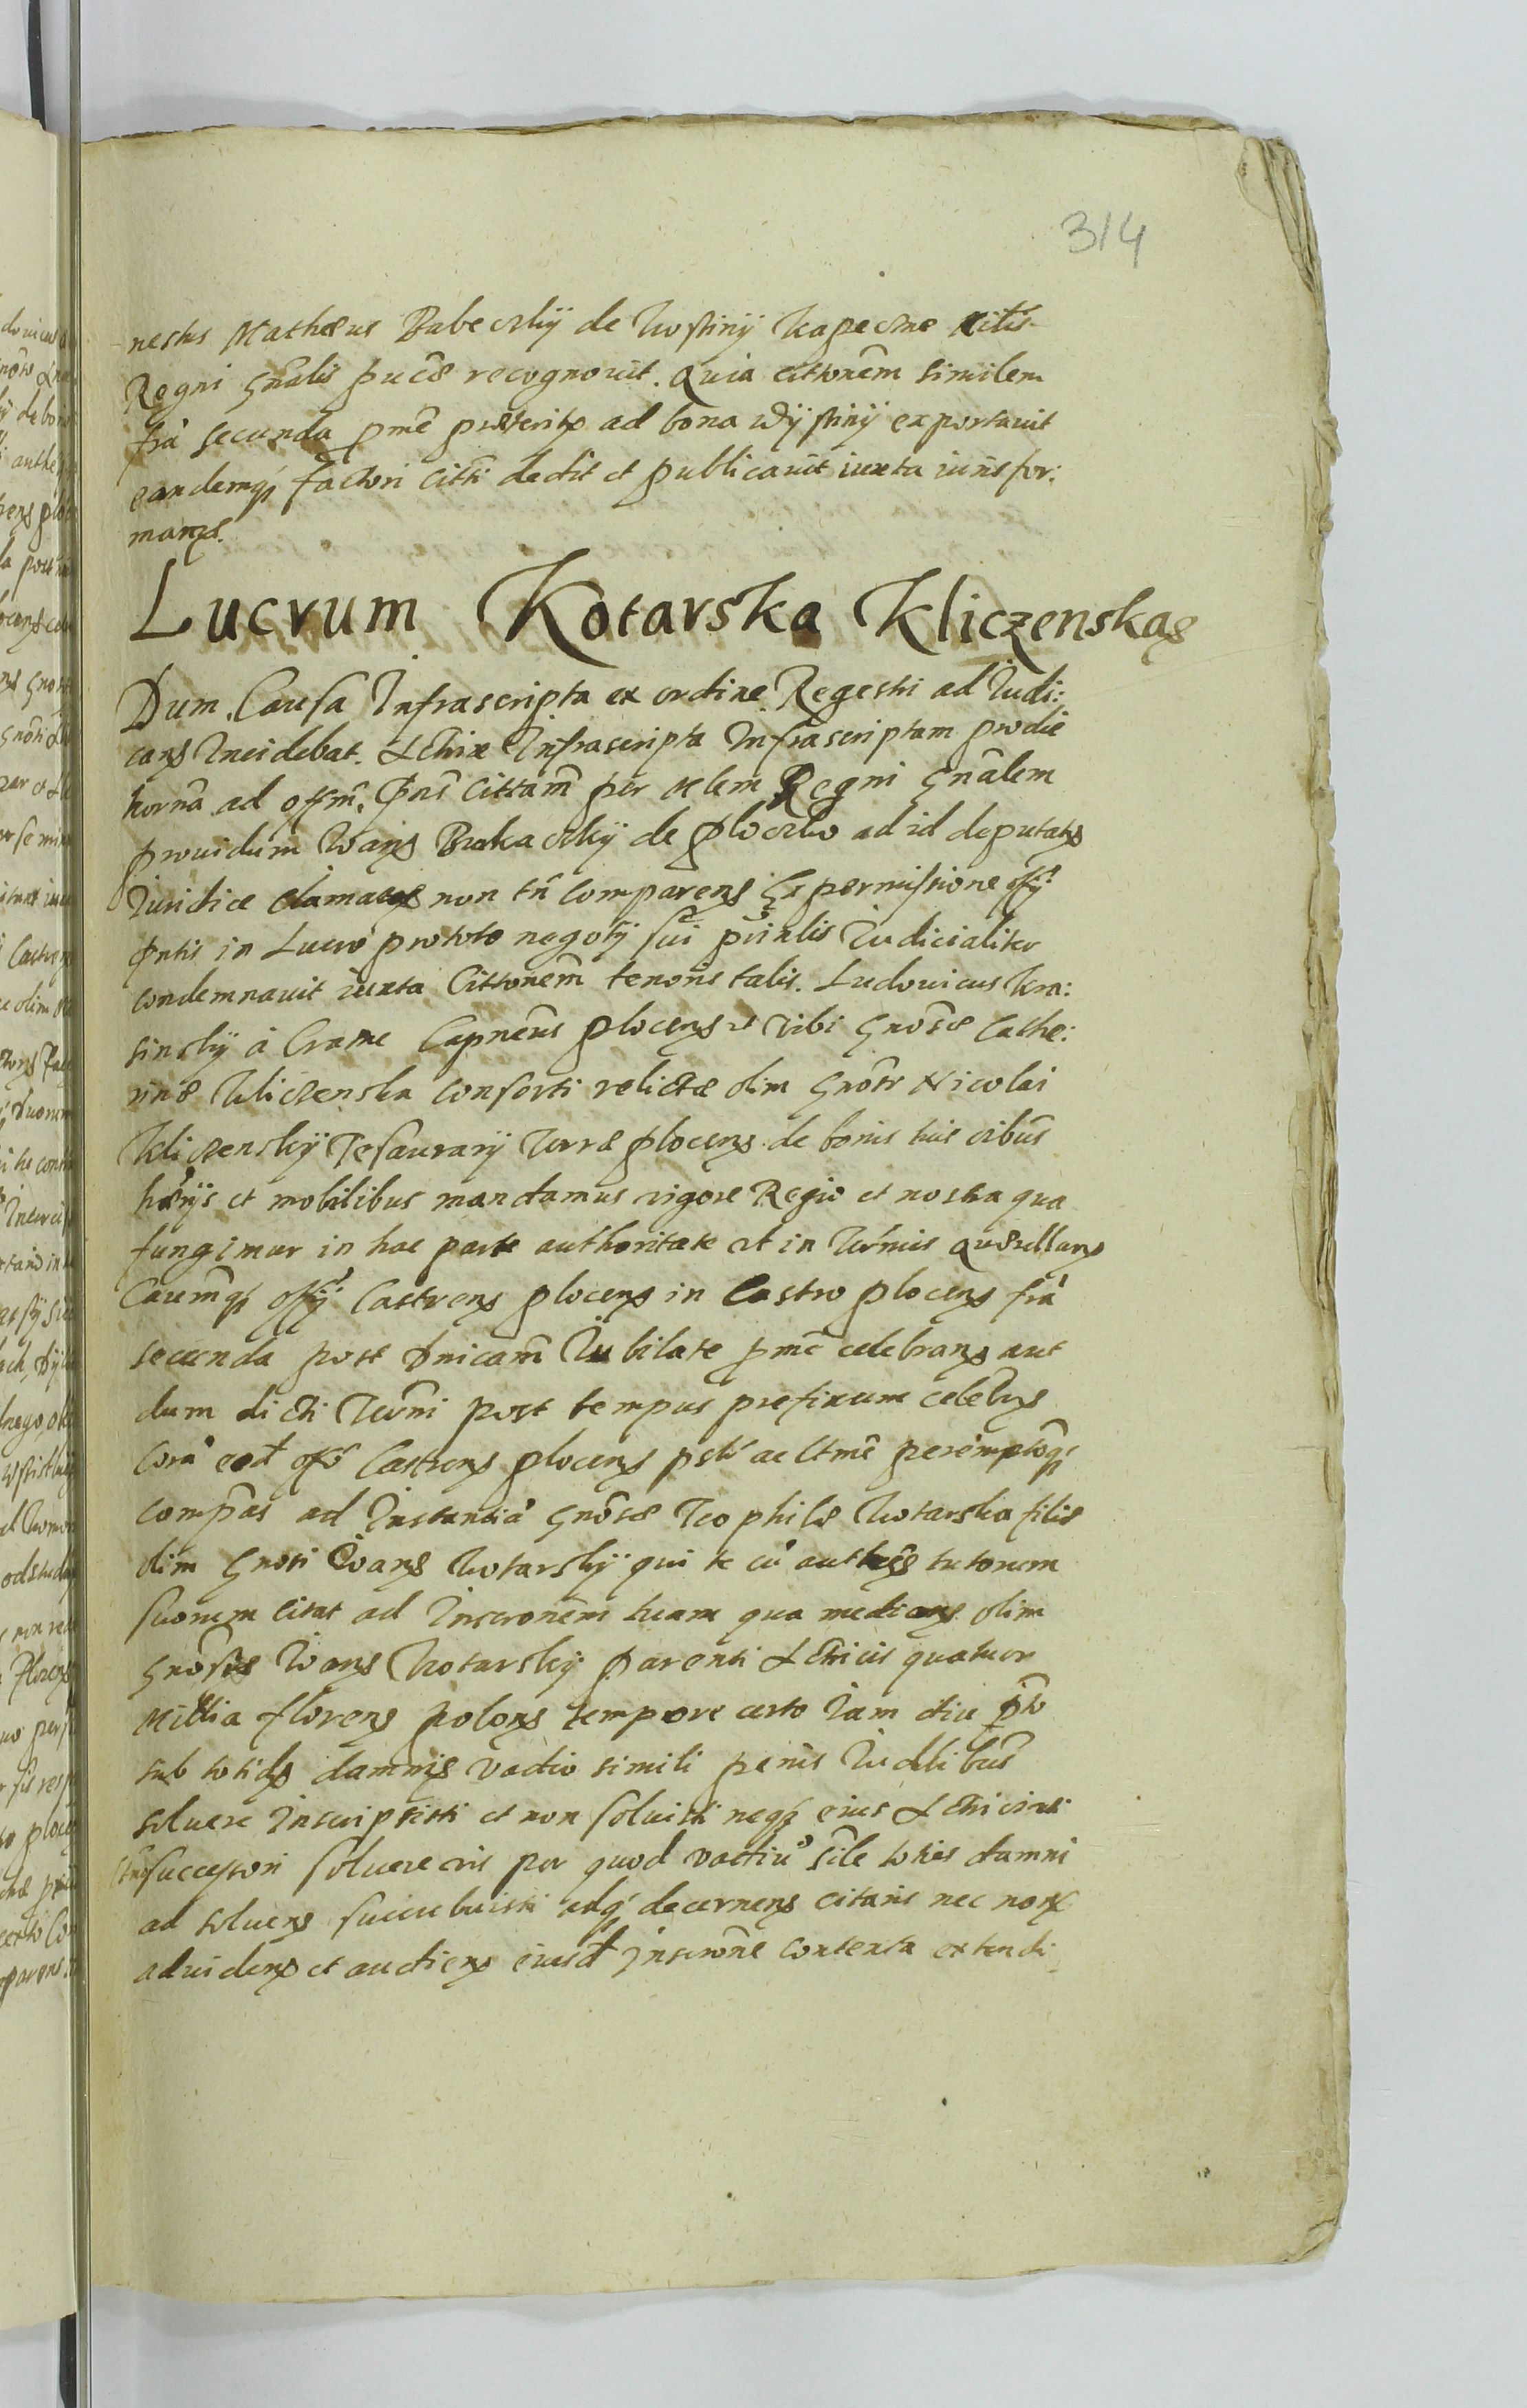 314
nestus Mathæus Babeczkij de Kostinij Kapeczne
Regni gnalis pucæ recognovit. Quia cittonem similem
fra secunda pme præterita ad bona Wÿstinij exportavit
eandemq factori citti dedit et publicavit iuxta iuris for:
mam.
Lucrum Kotarska Kliczenskae
Dum Causa Infrascripta ex ordine Regestri ad Iudi:
cans Incidebat. Actrix Infrascripta Infrascriptam prodie
horna ad offm. pns Cittam per Regni Gnalem
providum Ioans de Ploczko ad id deputats
Iuridice clamacs non tn Comparens Ex permissione offÿ
pntis in Lucro pro toto negotÿ sui prinlis Iudicialiter
condemnavit iuxta Cittonem tenoris talis. Ludovicus Kra:
sinskÿ à Crasne Capneus plocens Tibi Gnosæ Cathe:
rinæ Kliczenska consorti relictæ olim Gnosi Nicolai
Kliczenskÿ Tesaurarÿ Terræ plocens de bonis tuis oibus
hærÿs et mobilibus mandamus vigore Regio et nostra qua
fungimur in hac parte authoritate ut in Terminis querellars
Caremq offÿ Castrens plocens in Castro plocens fra
secunda post Dnicam Iubilate pme celebrans aut
dum dicti Termni post tempus prefixum celebrs
Cora eod offo Castrens plocens pslr ac ltme peremptoq
compas ad Instantia Gnosæ Teophilæ Kotarska filiæ
olim Gnosi Ioans Kotarskÿ qui te cu auths tutorum
suorum citat ad Inscronem tuam qua median olim
Gnoso Ioans Kotarskÿ parenti Actricis quatuor
Millia florens polons tempore certo Iam diu pto
sub totids damnis vadio simili penis Iudlibus
solvere Inscripsisti et non solvisti neq eius Actrici
successori solvere vis per quod vadiu sile toties damni
ad solvens succubuisti adq decernens citaris nec non
ad videns et audiens eiusd Inscrone contenta extendi